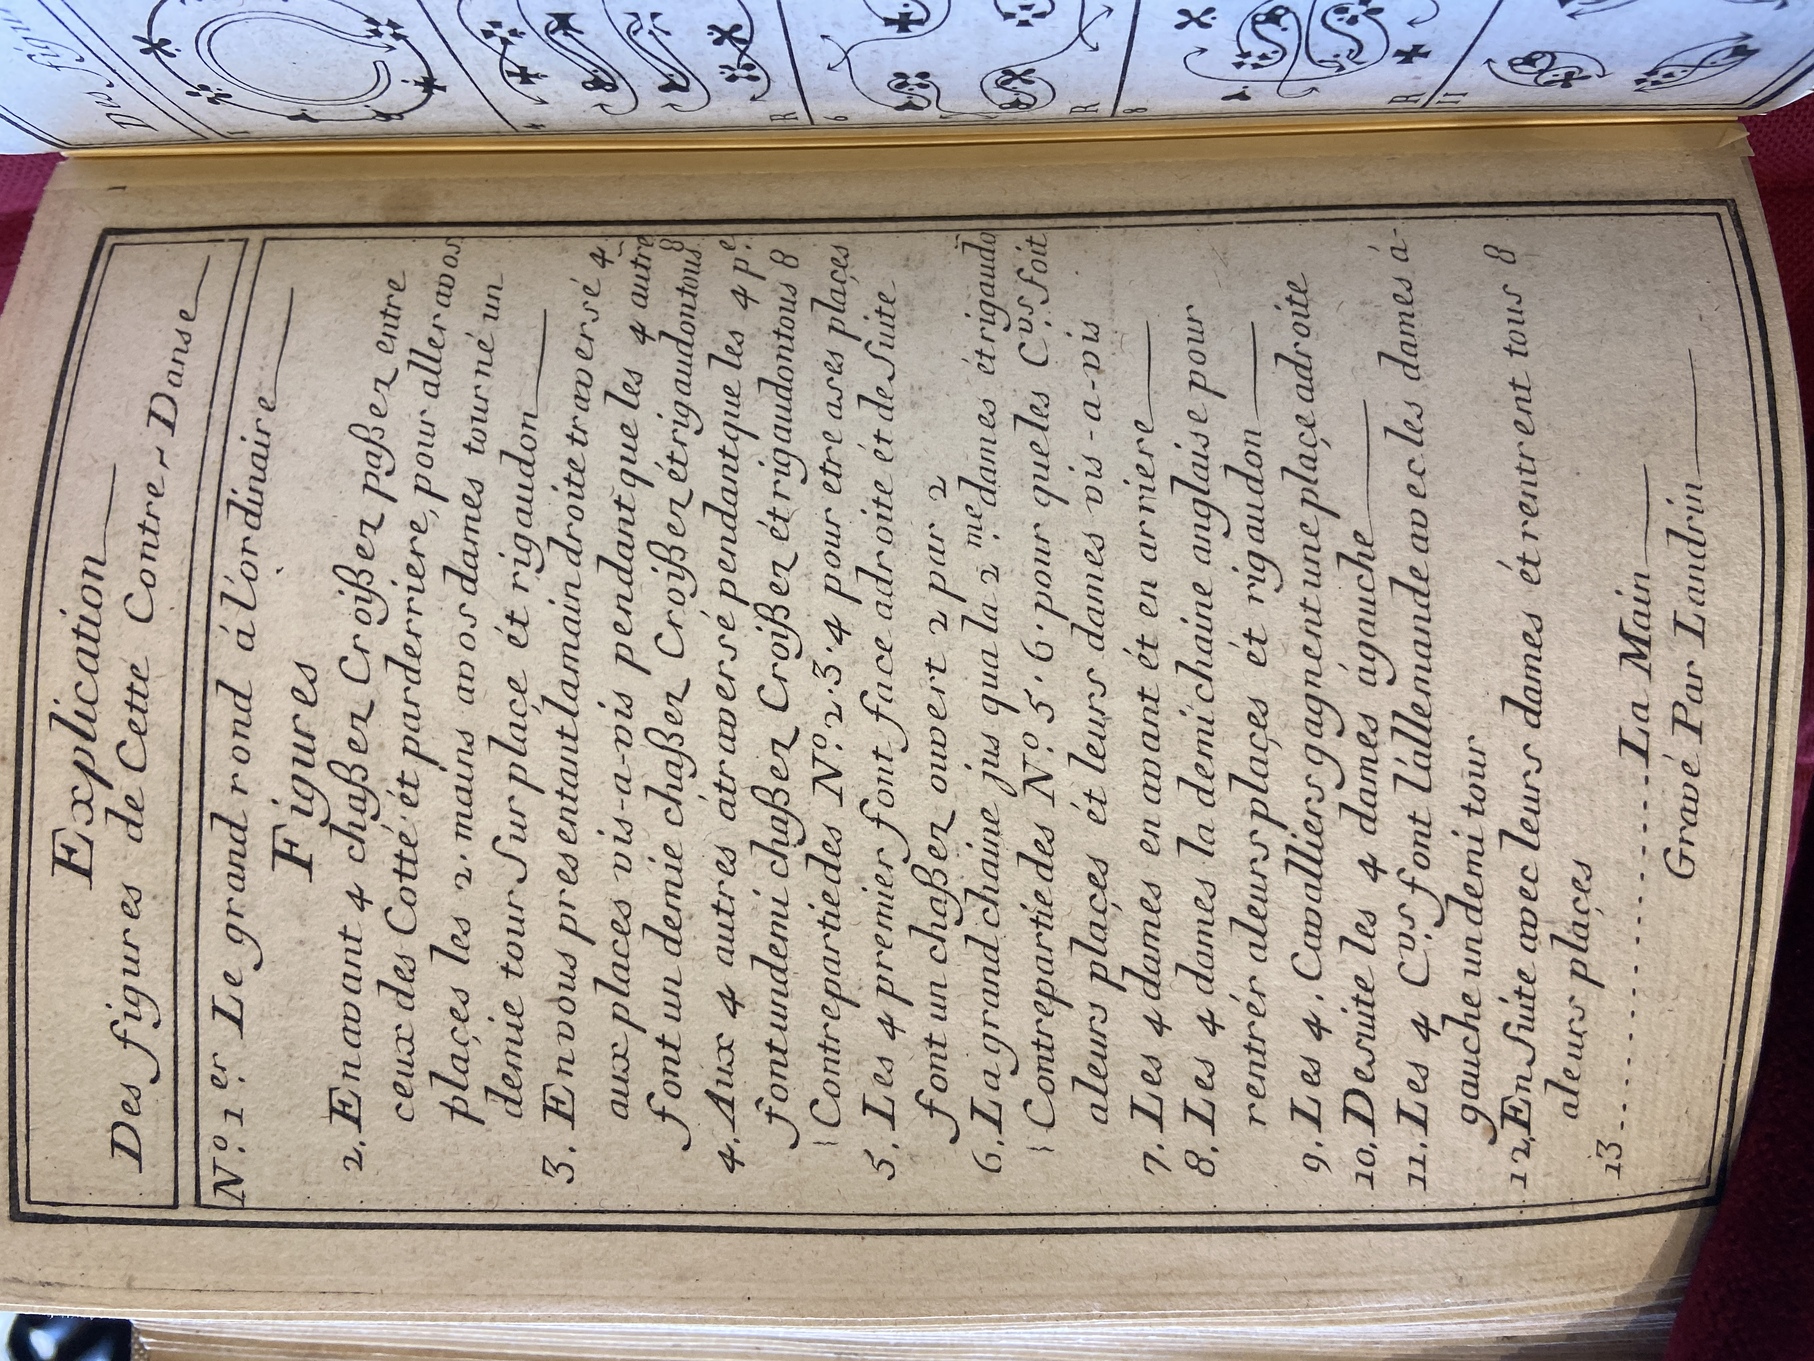 Explication
Des figures de Cette Contre-Danse
Nº. 1er. Le grand rond á l'ordinaire
Figures
2. En avant 4 chaßez Croißez paßez entre
ceux des Cotté ét par derriere, pour aller a vos
plaçes les 2. mains a vos dames tourné un
demie tour Sur plaçe ét rigaudon
3. En vous presentant la main droite traversé 4
aux places vis-a-vis pendant que les 4 autre
font un demie chaßez Croißez ét rigaudon tous 8
4. Aux 4 autres á traversé pendant que les 4 pe.
font un demi chaßez Croißez ét rigaudon tous 8
Contrepartie des Nº. 2. 3. 4 pour etre a ses plaçes
5. Les 4 premier font face a droite ét de Suite
font un chaßez ouvert 2 par 2
6. La grand chaine jus qua la 2.me dames ét rigaudõ
Contrepartie des Nº. 5. 6. pour que les C.vrs Soit
a leurs plaçes ét leurs dames vis-a-vis
7. Les 4 dames en avant ét en arriere
8. Les 4 dames la demi chaine anglaise pour
rentrér a leurs plaçes ét rigaudon
9. Les 4. Cavalliers gagnent une plaçe a droite
10. De suite les 4 dames á gauche
11. Les 4 C.vrs font l'allemande avec les dames á-
gauche un demi tour
12. En Suite avec leurs dames ét rentrent tous 8
a leurs plaçes
13 ........................ La Main
Gravé Par Landrin
1
Des figu
1
4
R
6
R
8
R
11